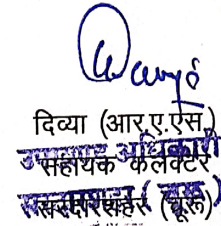 दिव्या (आर.ए.एस.)
उपखण्ड अधिकारी
सहायक कलेक्टर
सरदारशहर (चूरू)
सरदारशहर (चूरू)